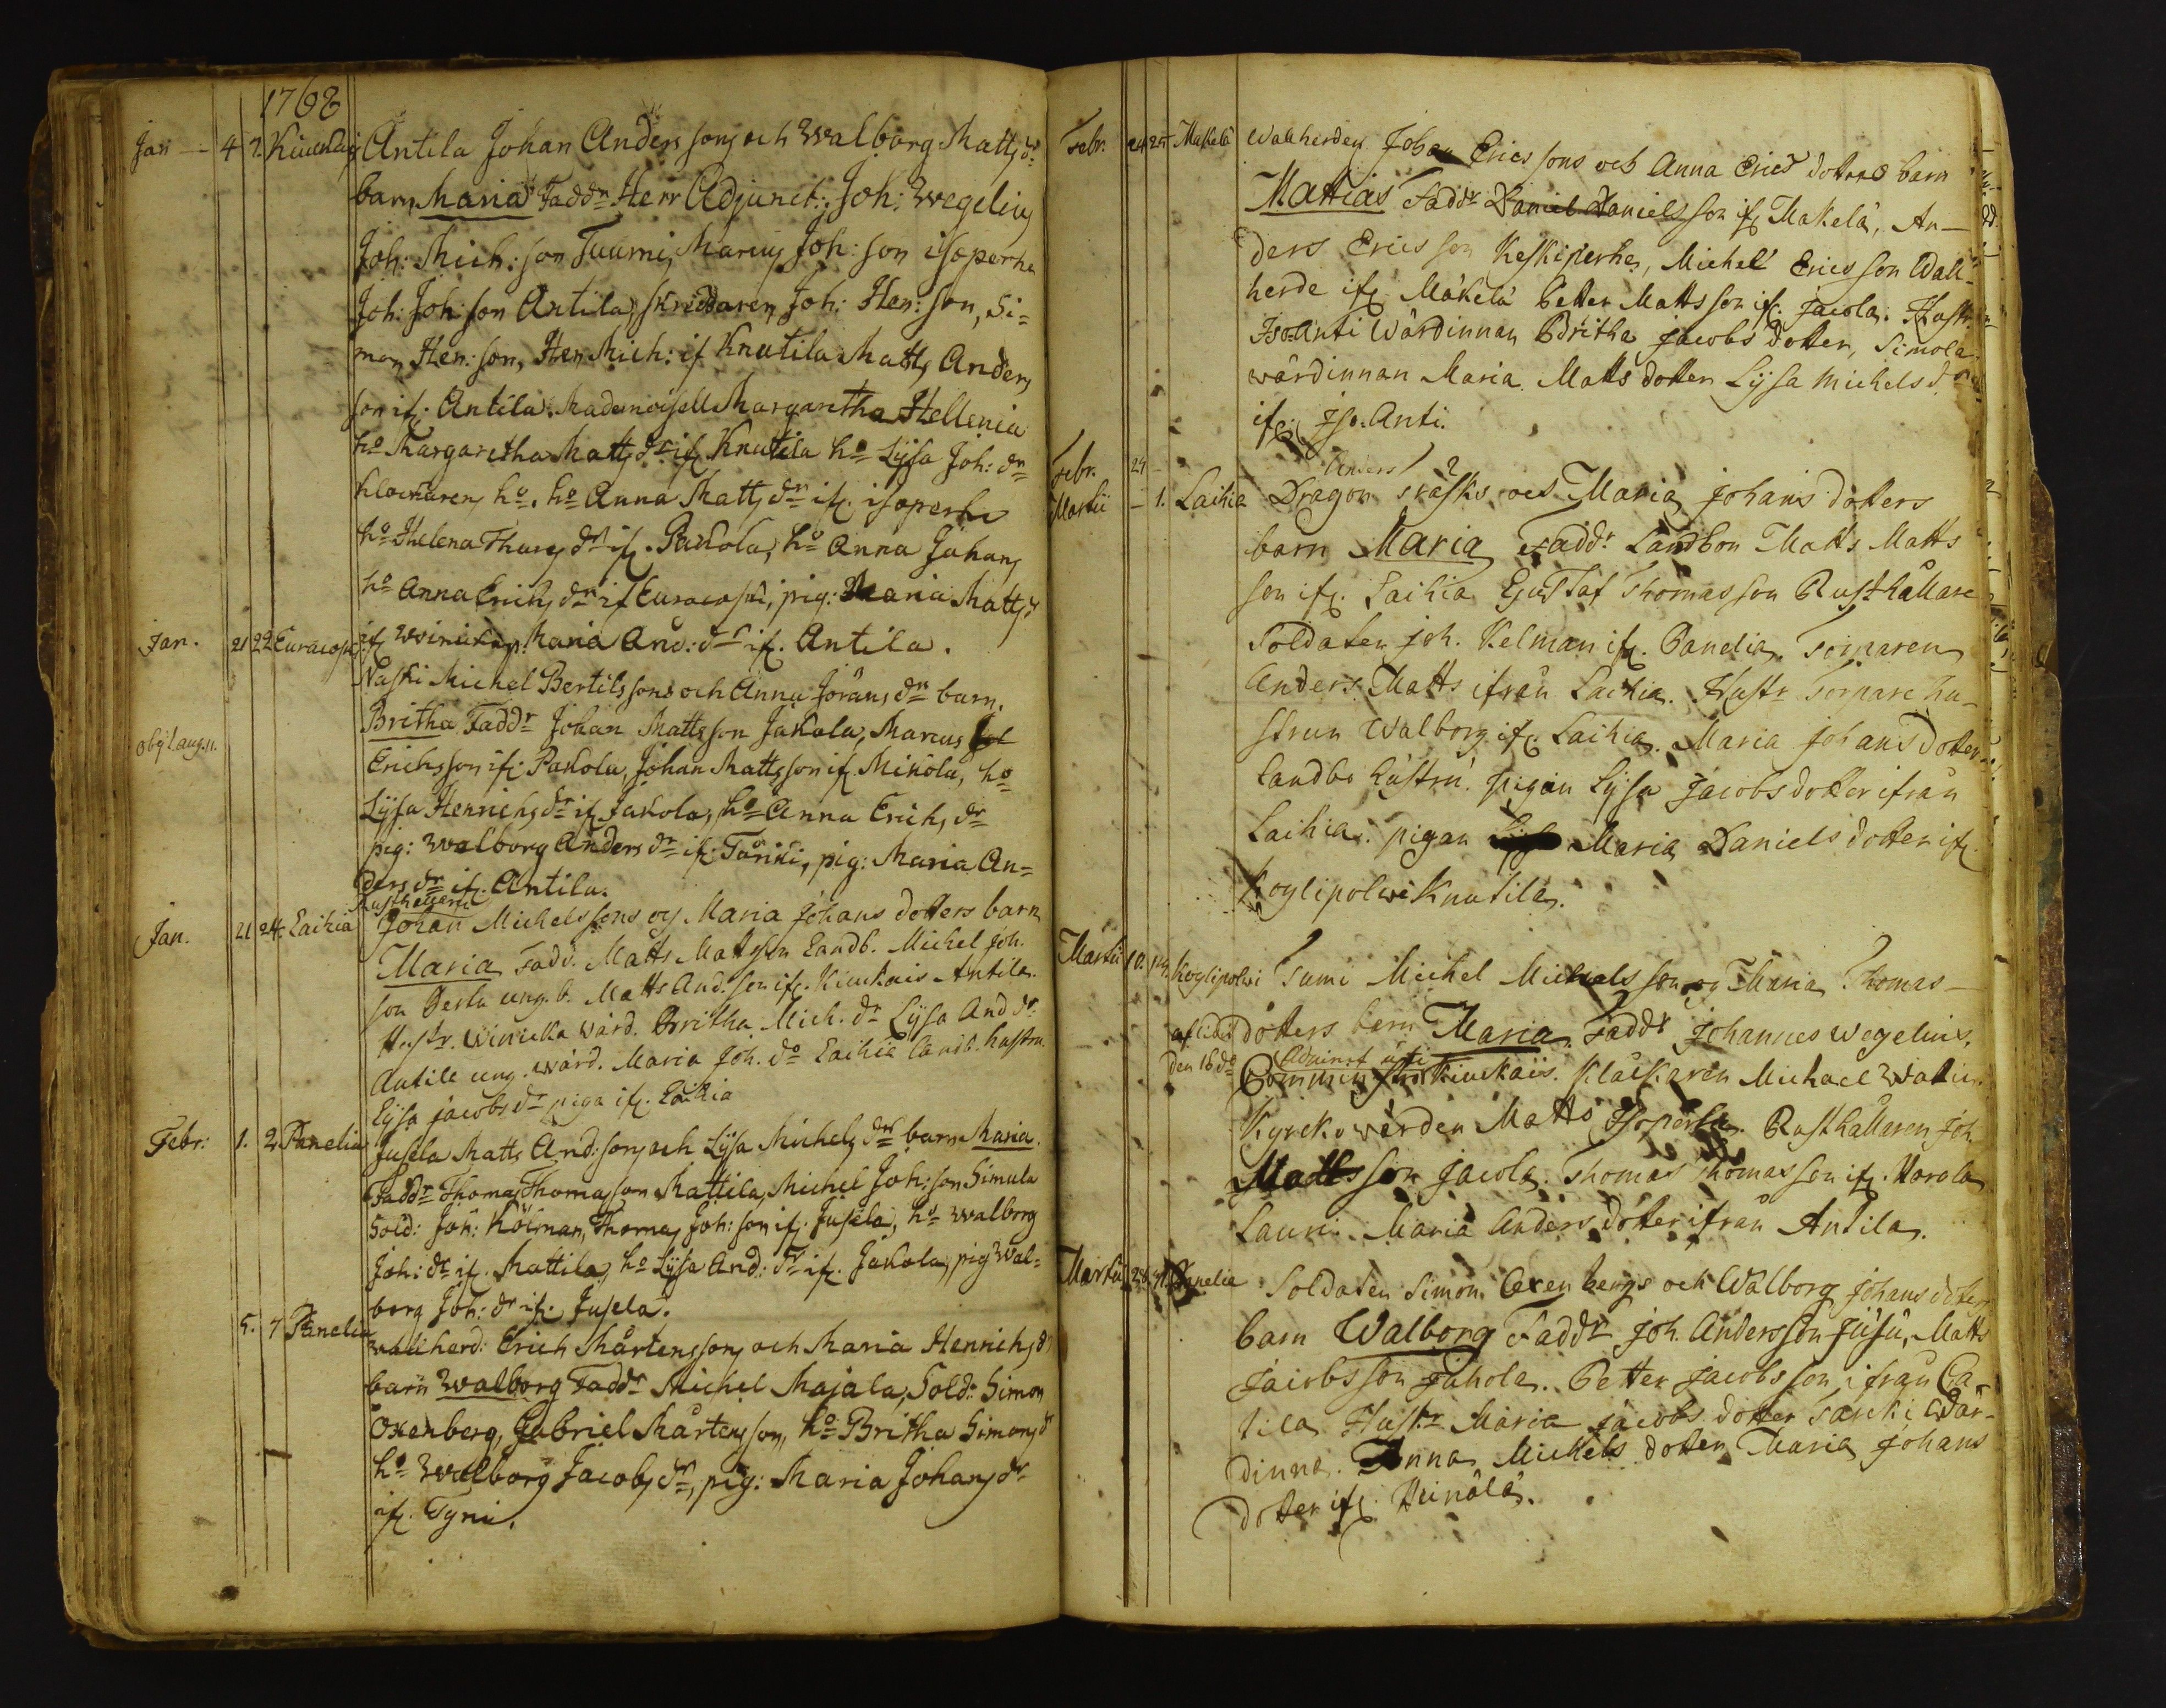 1768
Jan – 4 7. Kiuckais Antila Johan Anderssons och Walborg Matts dr:
barn Maria Faddr Herr Adjunct: Joh: Wegelius
Joh: Mich: son Tuumi, Marcus Joh: son isoperhe
Joh: Joh: son Antila, skreddaren Joh: Hen: son, Si=
mon Hen: son, Hen Mich: if Knutila Matts Anders
son if: Antila. Mademoisell Margaretha Hellenia
ho Margaretha Matts dr if Knutila ho Lysa Joh: dr
klockarens ho. ho Anna Matts dr if. isoperhe
ho Helena Thures dr if. Pakola, ho Anna Johans
ho Anna Erichs dr if Euracoski, pig: Maria Matts dr
if Winicka p. Maria And: dr if. Antila.
Jan. 21 22 Euracoski
Naski Michel Bertilssons och Anna Jörans dr barn.
Britha Faddr Johan Mattsson Jakola, Marcus
obijt aug. 11.
Erichsson if: Pakola, Johan Mattsson if. Mikola, ho
Lysa Henrichs dr if Jakola, ho Anna Erichs dr
pig: Walborg Anders dr if: Tarcki, pig: Maria An=
ders dr if. Antila.
Rusthållaren
Jan. 21 24. Laihia Johan Michelssons og Maria Johans dotters barn
Maria Fadd. Matts Mattsson Landb. Michel Joh.
son Pertu ung. b. Matts And. son if. Kiuckais Antila.
Hustr. Winicka wärd. Britha Mich. dr Lysa And dr.
Antila ung. wärd. Maria Joh. do Laihia landb. hustru.
Lysa Jacobs dr piga if. Laihia
Febr: 1. 2. Panelia Jusela Matts And: sons och Lysa Michels drs barn Maria.
Faddr Thomas Thomasson Mattila, Michel Joh: son Simula
Sold: Joh: Kölman, Thomas Joh: son if. Jusela, ho Walborg
Joh: dr if. Mattila, ho Lysa And: dr if. Jakola, pig Wal=
borg Joh: dr if. Jusela.
5. 7 Panelia
wallherd: Erich Mårtenssons och Maria Henrichs dr
barn Walborg Faddr Michel Majala, Sold: Simon
Oxenberg, Gabriel Mårtensson, ho Britha Simons dr
ho Walborg Jacobs dr, pig: Maria Johans dr
if. Tyni.
Febr. 24 25 Makela Wallherden Johan Ericssons och Anna Erics dotters barn
Mattias Faddr Daniel Danielsson if Makela, An—
ders Ericsson Keskiperhe, Michel Ericsson Wall-
herde if Mäkelä Petter Mattsson if. Jacola. Hustr.
Iso-Anti Wärdinnan Britha Jacobs dotter, Simola
wärdinnan Maria Matts dotter Lysa Michels d
if. Iso. Anti.
Febr. 29 Anders
Martii – 1. Laihia Dragon Rask och Maria Johans dotters
barn Maria Faddr. Landbon Matts Matts
son if. Laihia Gustaf Thomasson Rusthållare
Soldaten Joh. Kelman if. Panelia. Torparen
Anders Matts ifrån Laihia. Hustr Torpare hu-
strun Walborg if. Laihia. Maria Johans dotter
Landbo hustru. pigan Lysa Jacobsdotter ifrån
Laihia. pigan Maria Daniels dotter if.
Koylipolwi Knutila.
Martii 10. Koylipolwi Tumi Michel Michelsson og Maria Thomas—
aflidit dotters barn Maria. Faddr Johannes Wegelius,
den 16 do Adjunct uti
Kiuckais. Klåckaren Michael Walin
Kyrckowärden Matts Isoperhe. Rusthållaren Joh
Mattsson Jacola. Thomas Thomasson if. Harola
Lauri. Maria Anders dotter ifrån Antila.
Martii Panelia Soldaten Simon Oxenbergs och Walborg Johans dotters
barn Walborg Faddr Joh. Andersson Jusu, Matts
Jacobsson Jakola. Petter Jacobsson ifrån Ca-
tila Hustr Maria Jacobs dotter Tarcki Wär-
dinna. Anna Michels dotter Maria Johans
dotter if. Heinola.